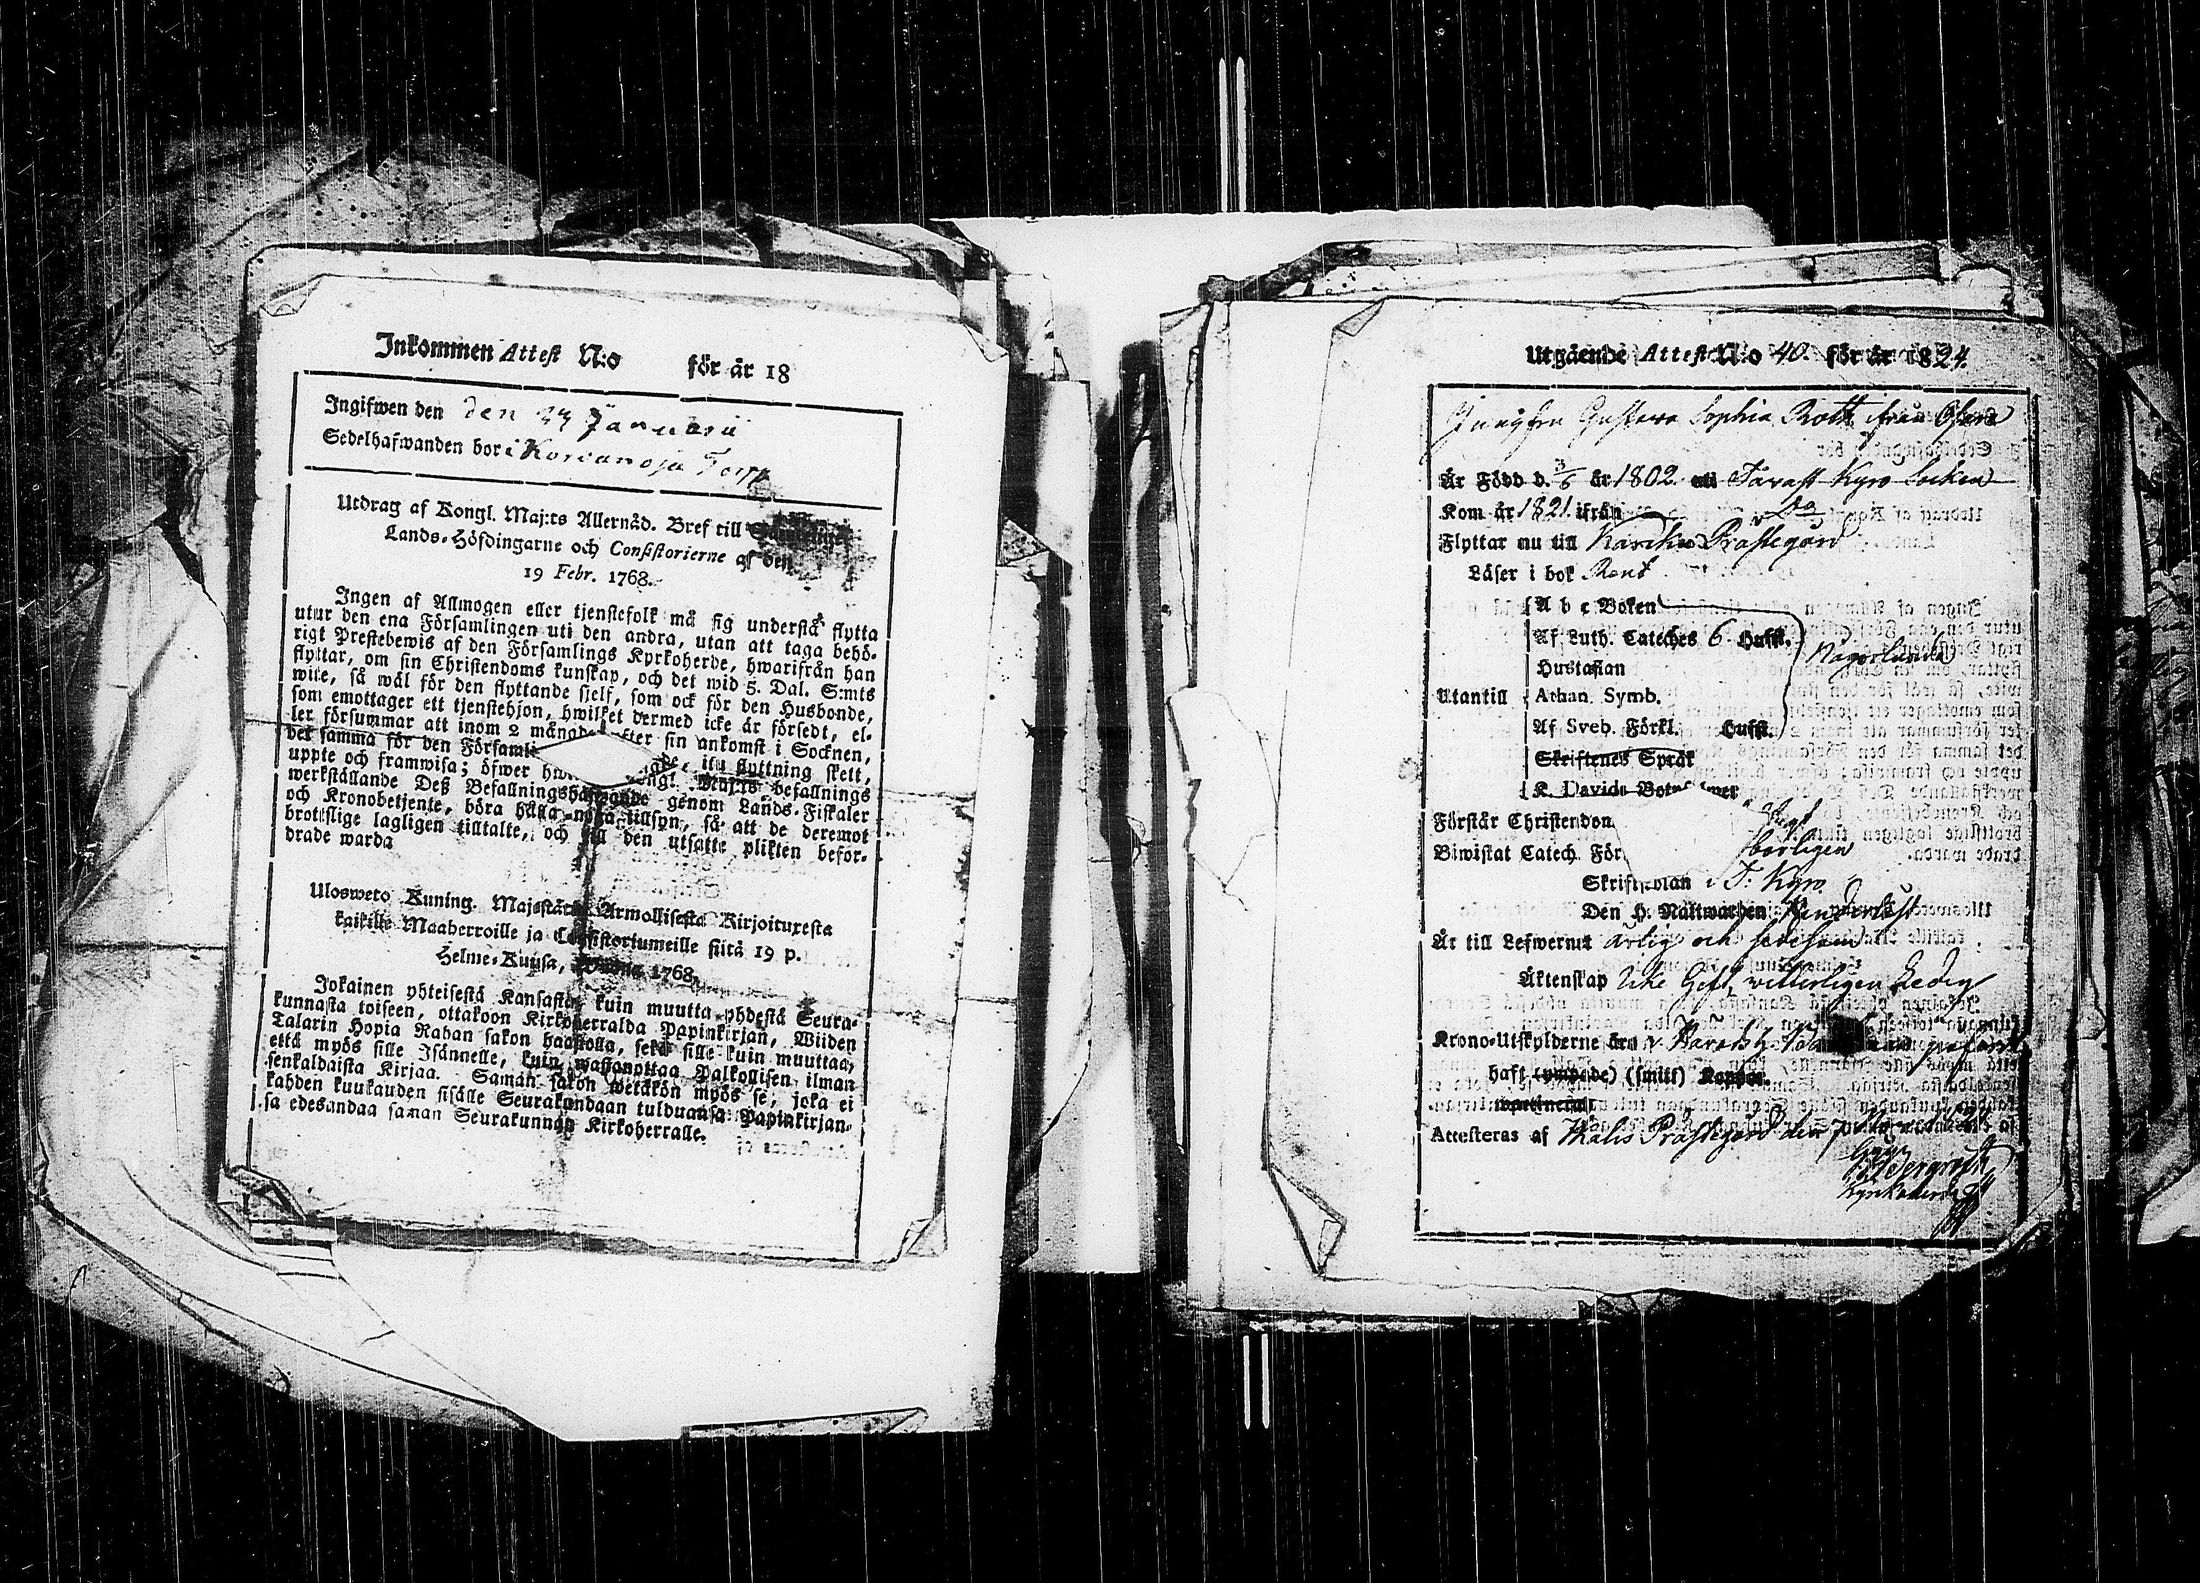 Inkommen Attest N:o för år 18
Ingifwen den den 23 Januarii
Sedelhafwanden bor i Torp
Utdrag af Kongl. Maj:ts Allernåd. Bref till
Lands-Höfdingarne och Consistorierne af den
19 Febr. 1768.
Ingen af Allmogen eller tjenstefolk må sig understå flytta
utur den ena Församlingen uti den andra, utan att taga behö-
rigt Prestebewis af den Församlings Kyrkoherde, hwarifrån han
flyttar, om sin Christendoms kunskap, och det wid 5. Dal. S:mts
wite, så wäl för den flyttande sielf, som ock för den Husbonde,
som emottager ett tjenstehjon, hwilket dermed icke är försedt, el-
ler försummar att inom 2 månader efter sin ankomst i Socknen,
det samma för den skett,
uppte och framwisa; öfwer Maj:ts befallnings
werkställande Deß Befallningshafwande genom Lands-Fiskaler
och Kronobetjente, böra hålla noga tillsyn, så att de deremot
brottslige lagligen tilltalte, och till den utsatte plikten befor-
drade warda
Ulosweto Kuning. Majestätin Armollisesta Kirjoituxesta
kaikille Maaherroille ja Consistoriumeille siitä 19 p.
Helme-Kuusa, 1768.
Jokainen yhteisestä Kansasta, kuin muutta yhdestä Seura-
kunnasta toiseen, ottakoon Kirkoherralda Papinkirjan, Wiiden
Talarin Hopia Rahan sakon haastolla, sekä sille kuin muuttaa,
että myös sille Isännelle, kuin wastanottaa Palkollisen ilman
senkaldaista Kirjaa. Saman sakon wetäkön myös se, joka ei
kahden kuukauden sisälle Seurakundaan tulduansa Papinkirjan-
sa edesandaa saman Seurakunnan Kirkoherralle.
Utgående Attest N:o 40. för år 1824.
Jungfru Gustava Sophia Roth ifrån
Är Född d. 3/6 år 1802. uti Tavast Kyro Socken
Kom år 1821. ifrån do
Flyttar nu till Karcku Prästegård
Läser i bok Rent
A b c Boken
Af Luth. Cateches 6 Hufst.
Hustaflan
Utantill Athan. Symb.
Af Sveb. Förkl. Hufst.
Skriftenes Språk
K. Davids Botpsalmer
Förstår Christendom
Biwistat Catech. För
Skriftskolan i T. Kyro
Den H. Nattwarden
Är till Lefwernet ärlig och
Äktenskap Icke Gift, vitterligen Ledig
Krono-Utskylderne
haft (ympade) (smitt) Koppor
Attesteras af Prästegård den
Kyrkoherde